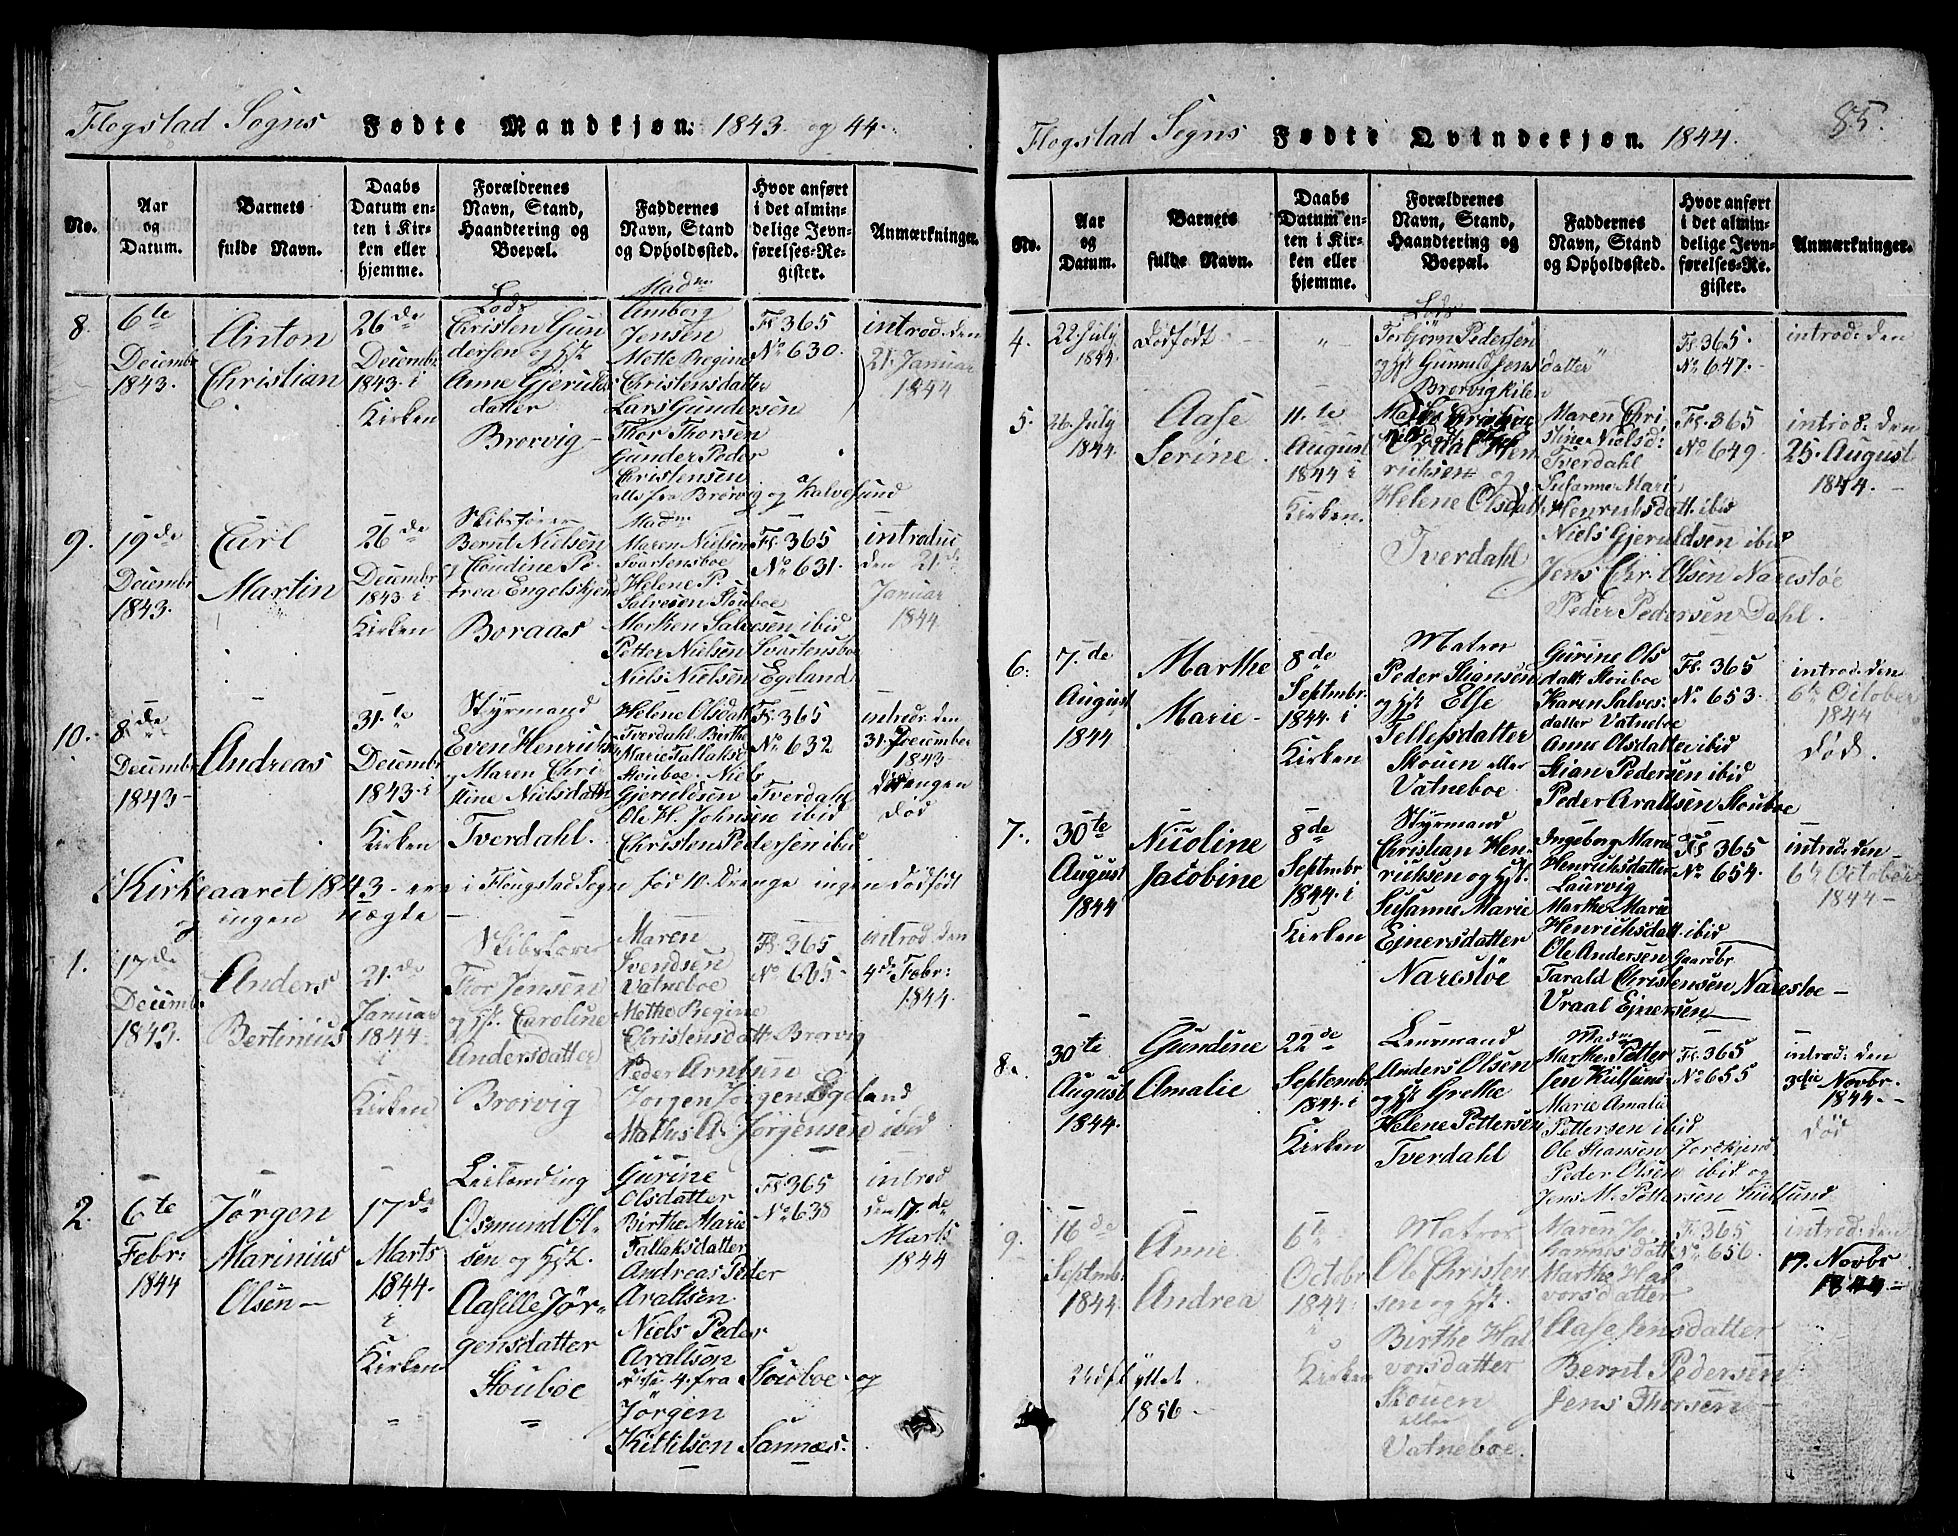 Flogstad Sogns Fødte Mandkjøn: 1843. og 44.
No.
Aar
og
Datum.
Barnets
fulde Navn.
Daabs
Datum en-
ten i Kir-
ken eller
hjemme.
Forældrenes
Navn, Stand,
Haandtering og
Boepæl.
Faddernes
Navn, Stand
og Opholdssted.
Hvor anført
i det almin-
delige Jevn-
førelses-Re-
gister.
Anmærkninger.
8.
6te
Decembr
1843.
Anton
Christian
26de
Decembr
1843. i
Kirken
Lods
Christen Gun
dersen og Hst.
Anne Gjerulds
datter
Brørvig
Madm
Amborg
Jensen
Mette Regine
Christensdatter
Lars Gundersen
Thor Thorsen
Gunder Peder
Christensen
alle fra Brørvig og Kalvesund
Fl 365
No 630.
introd. den
21. Januar
1844
9.
19de
Decembr
1843.
Carl
Martin
26de
Decembr
1843. i
Kirken
Skibsfører
Bernt Nielsen
og Claudine Pe-
trea Engelskjen
Boraas
Madm
Maren Nielsen
Svartensboe
Helene P.
Salvesen Stouboe
Morthen Salvesen ibid
Petter Nielsen Svartensboe
Niels Nielsen Egeland
Fl. 365
No 631.
introduc
den 21de
Januar
1844
10.
8de
Decembr
1843
Andreas
31.te
Decembr
1843. i
Kirken
Styrmand
Even Henriks
og Maren Chri
stine Nielsdattr
Tverdahl.
Helene Olsdatt
Tverdahl Birthe
Marie Tallaksd
Stouboe. Niels
Gjeruldsen Tverdahl
Ole H. Johnsen ibid
Christen Pedersen ibid
Fl. 365
No 632
introd. den
31. December
1843
Drengen
død
I Kirkeaaret 1843 ere i Flougstad Sogn fød 10 Drenge ingen dødfødt
og ingen uægte
1.
17de
Decembr.
1843.
Anders
Bertinius
21.de
Januar
1844
i
Kirken
Skibsfører
Thor Jensen
og Hst. Caroline
Andersdatter
Brørvig
Maren
Svendsen
Vatneboe
Methe Regine
Christensdatt. Brørvig
Peder Arntsen
Jørgen Jørgens Egeland
Mathis A. Jørgensen ibid
Fl. 365
No 635
introd. den
4de Febr:
1844.
2.
6te
Febr:
1844
Jørgen
Marinius
Olsen
17de
Marts
1844.
i
Kirken
Leilending
Osmund Ol-
sen og Hst.
Aasille Jør-
gensdatter
Stouboe
Gurine
Olsdatter
Birthe Marie
Tallaksdatter
Andreas Peder
Araltsen
Niels Peder
Araltsøn
disse 4. fra Stouboe og
Jørgen
Kittilsen Sannæs.
Fl 365
No 638
introd
den 17.de
Marts
1844
Flogstad Segns Fødte Qvindekjøn. 1844.
85.
No.
Aar
og
Datum.
Barnets
fulde Navn.
Daabs
Datum en-
ten i Kir-
ken eller
hjemme.
Forældrenes
Navn, Stand,
Haandtering og
Boepæl.
Faddernes
Navn, Stand
og Opholdssted.
Hvor anført
i det almin-
delige Jevn-
førelses-Re-
gister.
Anmærkninger.
4.
22. July
1844.
Dødfødt
"
Lods
Torbjørn Pedersen
og Hst Gunnild Jensdatter
Brørvigkilen
"
Fl 365.
No 647.
introd: den
5.
26. July
1844.
Aase
Serine.
11.te
August
1844 i
Kirken.
Hen
richsen og
Helene Olsdatt
Tverdahl
Maren Chri
stine Nielsd:
Tverdahl
Susanne Marie
Henrichsdatt. ibid
Niels Gjeruldsen ibid
Jens Chr. Olsen Narestøe
Peder Pedersen Dahl.
Fl. 365
No 649.
introd: den
25. August
1844.
6.
7.de
August
1844
Marthe
Marie
8de
Septmbr.
1844. i
Kirken
Matros
Peder Stiansen
og Hst Else
Tellefsdatter
Skouen eller
Vatneboe
Gurine Ols
datt. Stouboe
Karen Salves-
datter Vatneboe
Anne Olsdatter ibid
Stian Pedersen ibid
Peder Araltsen Stouboe
Fl. 365
No 653.
introd: den
6te October
1844
død.
7.
30te
August
1844
Nicoline
Jacobine
8de
Septmbr
1844. i
Kirken
Styrmand
Christian Hen-
richsen og Hst.
Susanne Marie
Ejnersdatter
Narestøe
Ingeborg Marie
Henrichsdatter
Laurvig
Marthe Marie
Henrichsdatt. ibid
Ole Andersen Gaardbr.
Tarald Christensen Narestøe
Vraal Ejnersen
Fl 365
No 654.
introd: den
6te October
1844
8.
30te
August
1844.
Gundine
Amalie
22de
Septembr
1844. i
Kirken
Anders Olsen
og Hst Grethe
Helene Pettersen
Tverdahl
Madm
Marthe Petter
sen Kiilsund
Marie Amalie
Pettersen ibid
Ole Stiansen Jordkjend
Peder Olsen ibid og
Jens M. Pettersen Kiilsund.
Fl. 365
No 655
introd: den
3die Novbr.
1844.
død
9.
16de
Septmbr.
1844.
Anne
Andrea
6te
Octobr
1844.
i
Kirken
Matros
Ole Christen
sen og Hst.
Birthe Hal
vorsdatter
Skouen
eller
Vatneboe.
Maren Jo-
hannesdatt
Marthe Hal
vorsdatter
Aase Jensdatter
Bernt Pedersen
Jens Thorsen
Fl. 365
No 656.
introd: den
17. Novbr
1844.
Udflyttet
1856